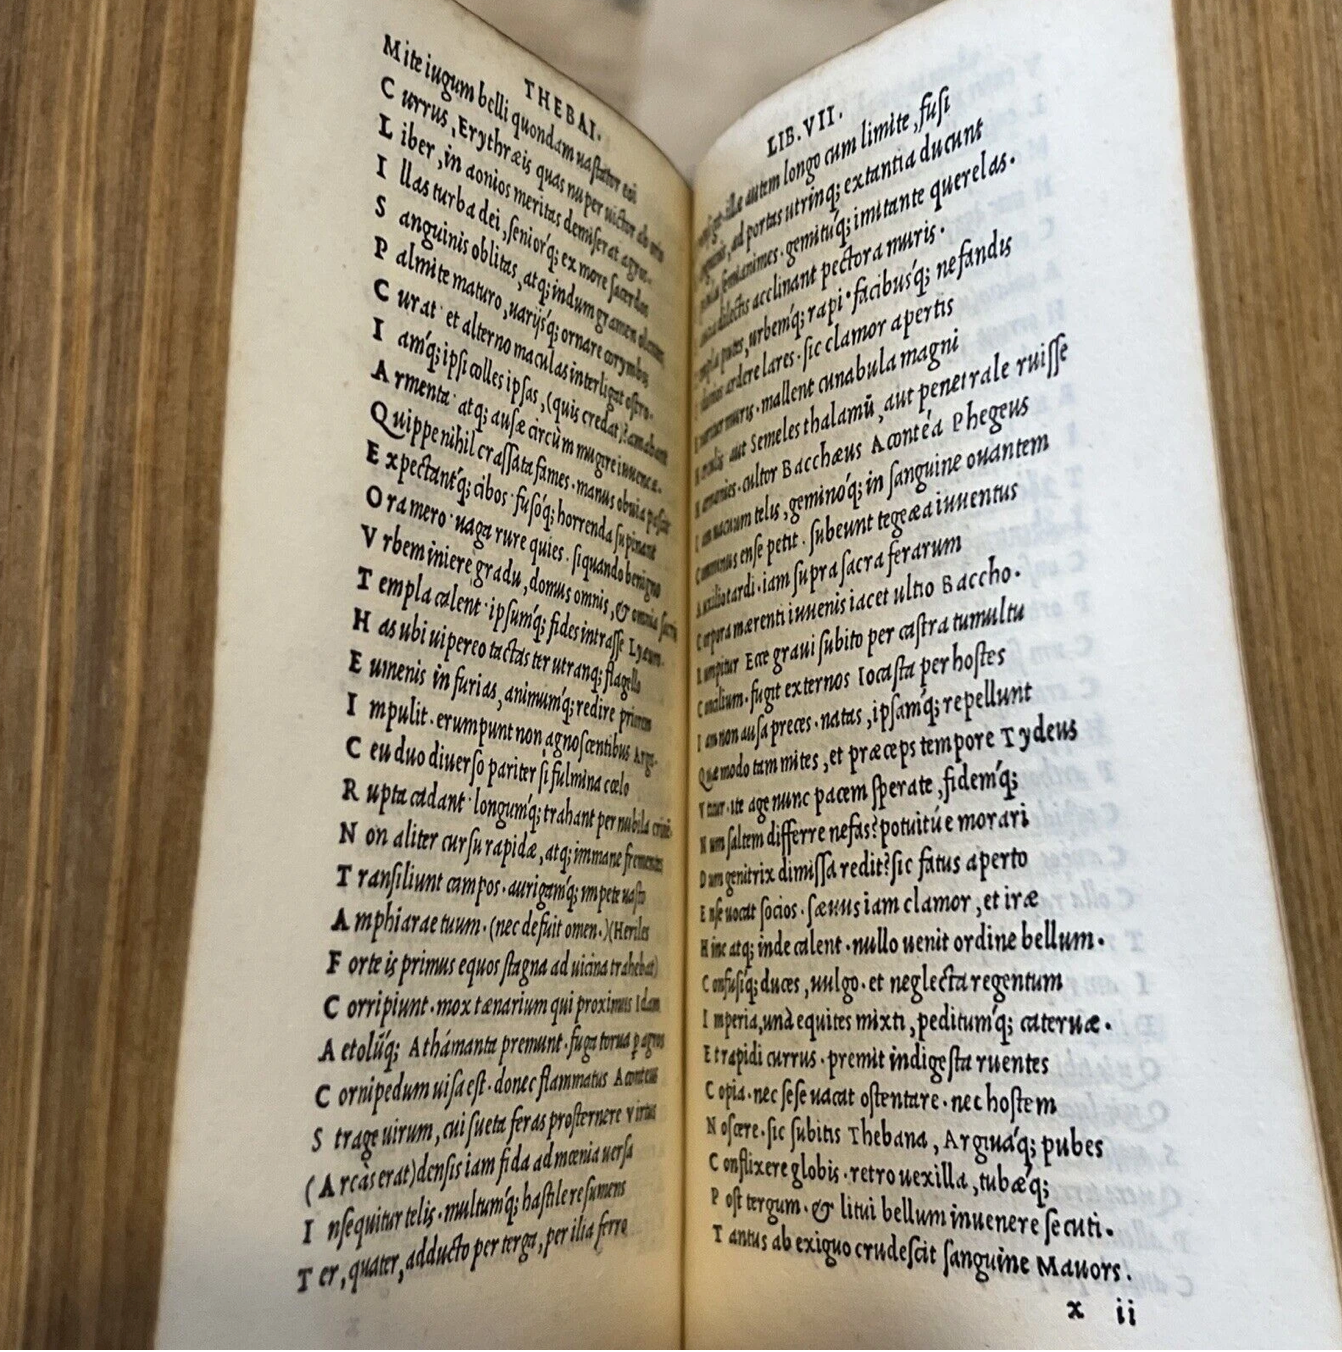 THEBAI.
Mite iugum belli quondam uastator eoi
C urrus, Erythræis quas nuper uictor ab oris
L iber, in aonios meritas demiserat agros.
I llas turba dei, senior'q; ex more sacerdos
S anguinis oblitas, atq; indum gramen olentes
P almite maturo, uarijs'q; ornare corymbis
C urat· et alterno maculas interligat ostro.
I am'q; ipsi colles ipsas, (quis credat)? amabant
A rmenta· atq; ausæ circùm mugire iuuencæ.
Quippe nihil crassata fames· manus obuia pascit
E xpectant'q; cibos· fusó'q; horrenda supinant
O ra mero· uaga rure quies· si quando benigno
V rbem iniere gradu, domus omnis, & omnia sacris
T empla calent· ipsum'q; fides intrasse Lyæum.
H as ubi uipereo tactas ter utranq; flagello
E umenis in furias, animum'q; redire priorem
I mpulit· erumpunt non agnoscentibus Argis.
C eu duo diuerso pariter si fulmina cœlo
R upta cadant· longum'q; trahant per nubila crinē.
N on aliter cursu rapidæ, atq; immane frementes
T ransiliunt campos· aurigam'q; impete uasto
A mphiarae tuum· (nec defuit omen·)(Heriles
F orte is primus equos stagna ad uicina trahebat)
C orripiunt· mox tænarium qui proximus Idam
A etoliī'q; Athámanta premunt· fuga torua p agros
C ornipedum uisa est· donec flammatus Aconteus
S trage uirum, cui sueta feras prosternere virtus
( A rcàs erat) densis iam fida ad mœnia uersa
I nsequitur telis· multum'q; hastile resumens
T er, quater, adducto per terga, per ilia ferro
LIB. VII.
illæ autem longo cum limite, fusi
ad portas utrinq; extantia ducunt
semianimes· gemitu'q; imitante querelas.
dilectis acclinant pectora muris.
putes, urbem'q; rapi· facibus'q; nefandis
S idonios ardere lares· sic clamor apertis
E xoritur muris· mallent cunabula magni
H erculis aut Semeles thalamū, aut penetrale ruisse
H armonies· cultor Bacchæus Aconté'a Phegeus
I am uacuum telis, gemino'q; in sanguine ouantem
C omminus ense petit· subeunt tegeæa iuuentus
A uxilio tardi· iam supra sacra ferarum
C orpora mærenti iuuenis iacet ultio Baccho.
R umpitur Ecce graui subito per castra tumultu
C oncilium· fugit externos Iocasta per hostes
I am non ausa preces· natas, ipsam'q; repellunt
Qui modo tam mites, et præceps tempore Tydeus
V titur· ite age nunc pacem sperate, fidem'q;
N um saltem differre nefas? potuitú e morari
D um genitrix dimissa redit? sic fatus aperto
E nse uocat socios· sæuus iam clamor, et iræ
H inc atq; inde calent· nullo uenit ordine bellum.
C onfusi'q; duces, uulgo· et neglecta regentum
I mperia, unà equites mixti, peditum'q; cateruæ.
E t rapidi currus· premit indigesta ruentes
C opia· nec sese uacat ostentare· nec hostem
N oscere· sic subitis Thebana, Argiua'q; pubes
C onflixere globis· retro uexilla, tubæ'q;
P ost tergum· & litui bellum inuenere secuti.
T antus ab exiguo crudescit sanguine Mauors.
x ii